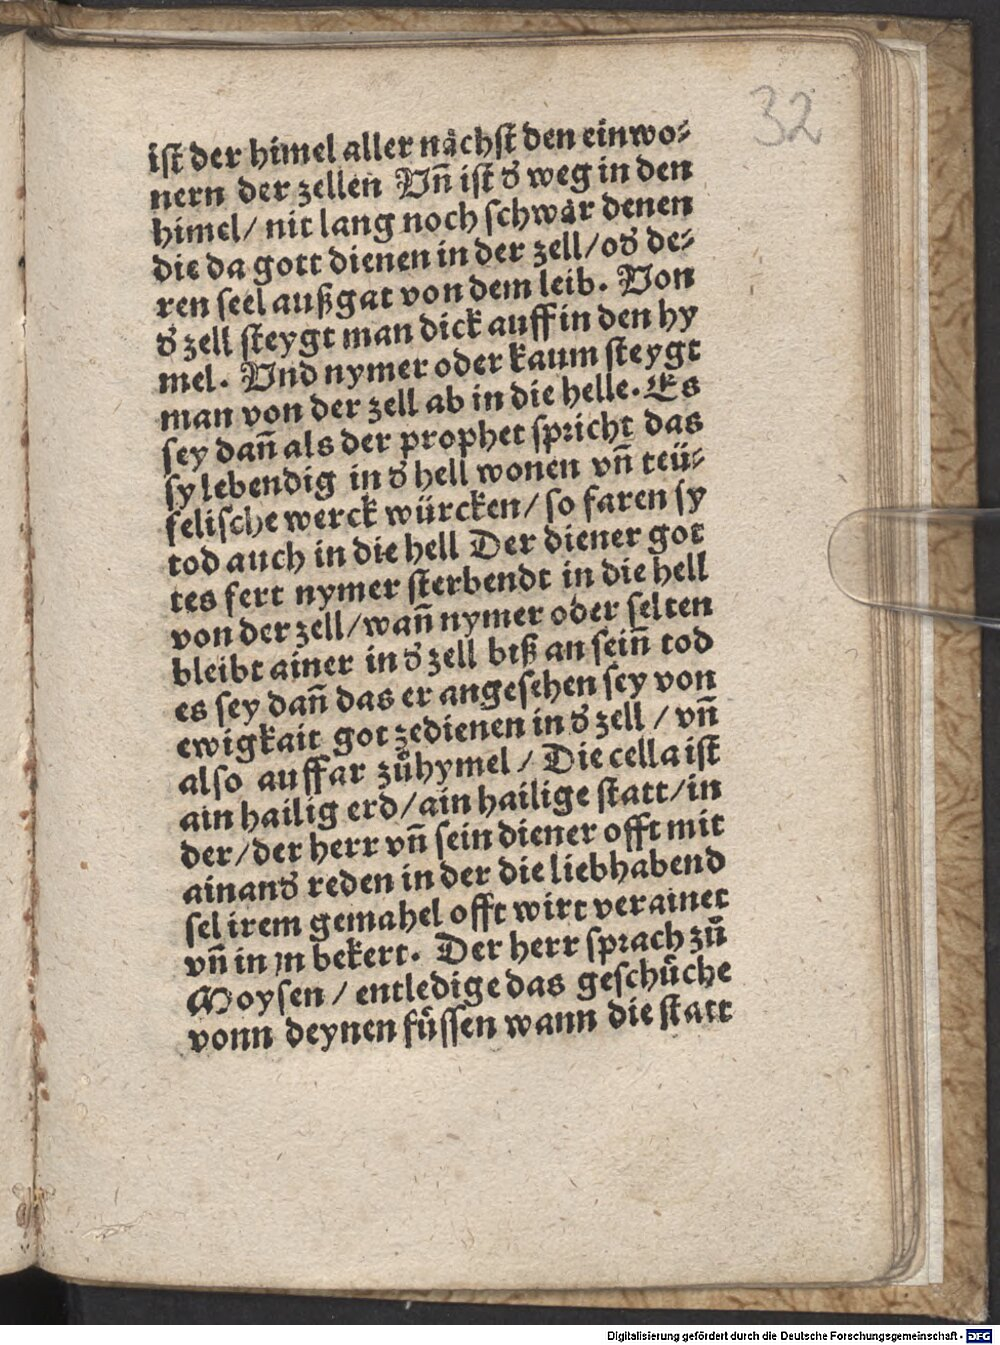 32
ist der himel aller nåchst den einwo⸗
nern der zellen Vn̄ ist ď weg in den
himel/ nit lang noch schwår denen
die da gott dienen in der zell/oď de⸗
ren seel außgat von dem leib. Von
ď zell steygt man dick auff in den hy
mel. Vnd nymer oder kaum steygt
man von der zell ab in die helle. Es
sey dañ als der prophet spricht das
sy lebendig in ď hell wonen vn̄ teü⸗
felische werck würcken/ so faren sy
tod auch in die hell Der diener got
tes fert nymer sterbendt in die hell
von der zell/wañ nymer oder selten
bleibt ainer in ď zell biß an sein̄ tod
es sey dañ das er angesehen sey von
ewigkait got zedienen in ď zell / vn̄
also auffar zůhymel / Die cella ist
ain hailig erd/ain hailige statt/in
der/der herr vn̄ sein diener offt mit
ainanď reden in der die liebhabend
sel irem gemahel offt wirt verainet
vn̄ in jn bekert. Der herr sprach zů
Moysen / entledige das geschůche
vonn deynen fůssen wann die statt
Digitalisierung gefördert durch die Deutsche Forschungsgemeinschaft - DFG